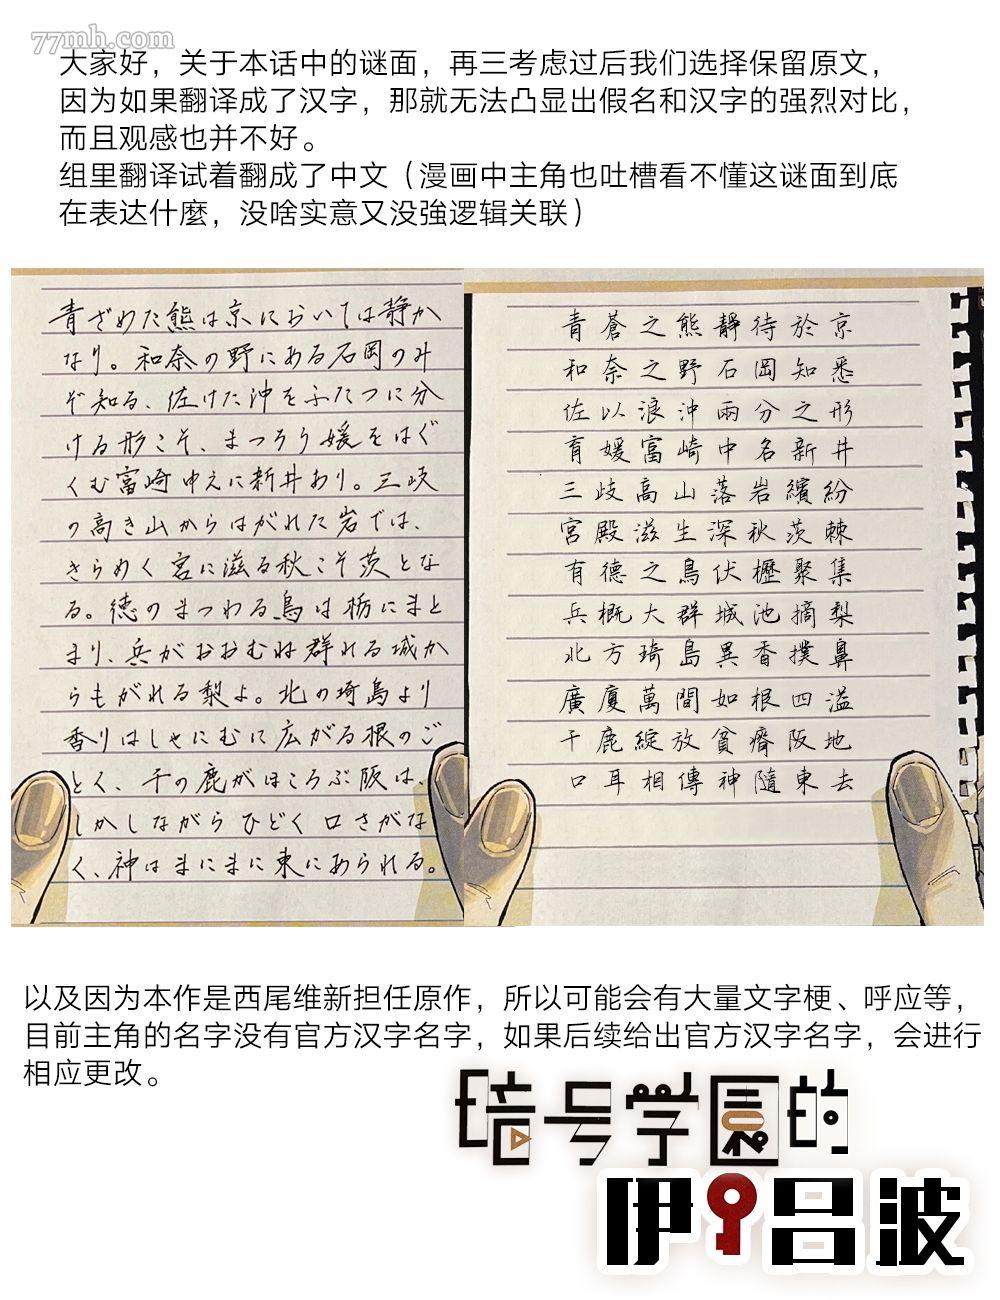 77mh.com
大家好，关于本话中的谜面，再三考虑过后我们选择保留原文，
因为如果翻译成了汉字，那就无法凸显出假名和汉字的强烈对比，
而且观感也并不好。
组里翻译试着翻成了中文（漫画中主角也吐槽看不懂这谜面到底
在表达什麼，没啥实意又没強逻辑关联）
青ざめた熊は京においては静か
なり。和奈の野にある石岡のみ
ぞ知る、佐けた沖をふたつに分
ける形こそ、まつろう媛をはぐ
くむ富崎中えに新井あり。三岐
の高き山からはがれた岩では、
きらめく宮に滋る秋こそ茨とな
る。徳のまつわる鳥は栃にまと
まり、兵がおおむね群れる城か
らもがれる梨よ。北の埼島より
香りはしゃにむに広がる根のご
とく、千の鹿がほころぶ阪は、
しかしながらひどく口さがな
く、神はまにまに東にあられる。
青蒼之熊靜待於京
和奈之野石岡知悉
佐以浪沖兩分之形
育媛富崎中名新井
三歧高山落岩繽紛
宮殿滋生深秋茨棘
有德之鳥伏櫪聚集
兵概大群城池摘梨
北方琦島異香撲鼻
廣廈萬間如根四溢
千鹿綻放貧瘠阪地
口耳相傳神隨東去
以及因为本作是西尾维新担任原作，所以可能会有大量文字梗、呼应等，
目前主角的名字没有官方汉字名字，如果后续给出官方汉字名字，会进行
相应更改。
暗号学園的
伊吕波